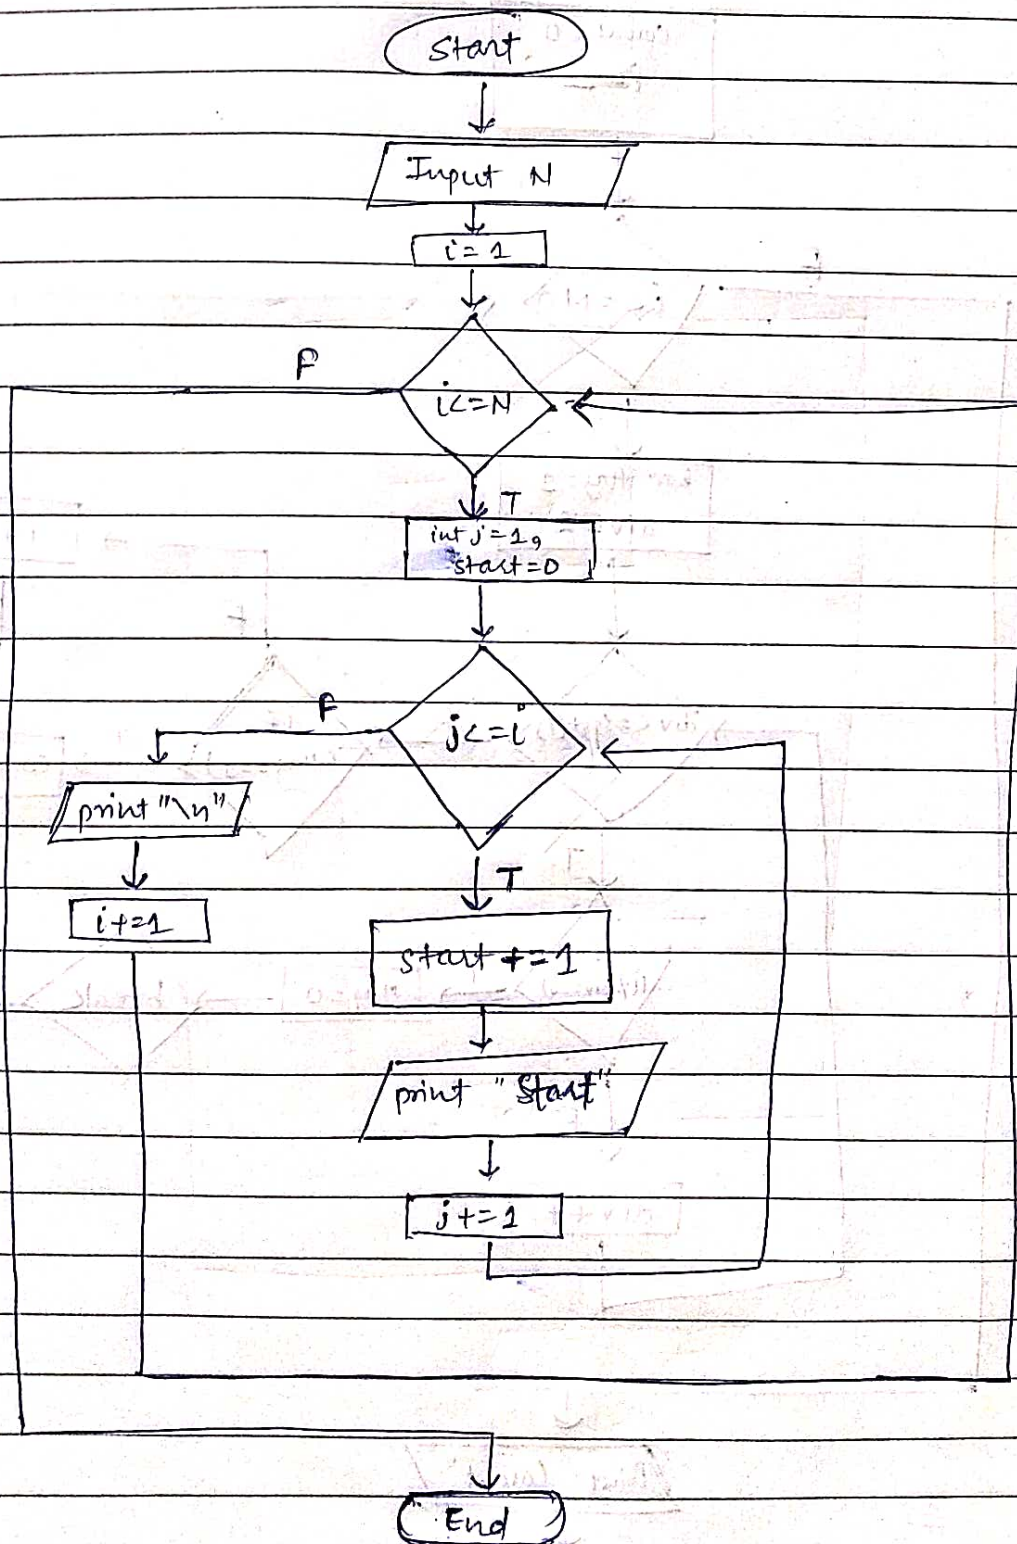 Start
Input N
i = 1
F
i<=N
T
int j = 1,
start = 0
F
j<=i
print "\n"
T
i+=1
start += 1
print "Start"
j+=1
End